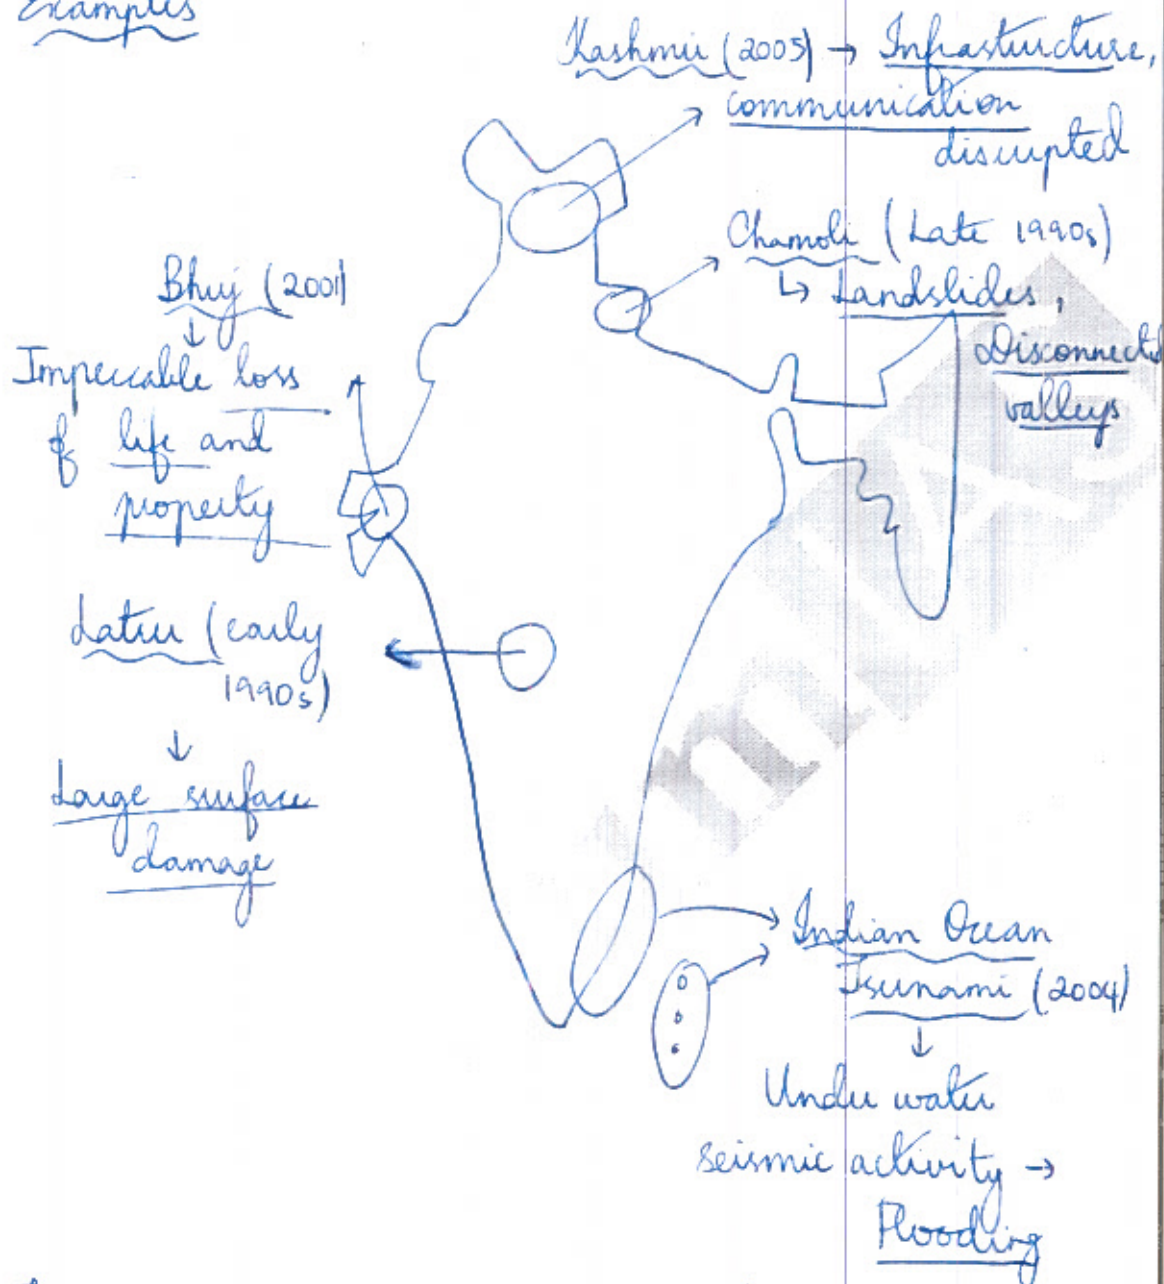 Examples
Kashmir (2005) → Infrasturcture,
communication
disrupted
Chamoli (Late 1990s)
↳ Landslides,
Disconnected
valleys
Bhuj (2001)
↓
Impeccable loss
of life and
property
Latur (early
1990s)
↓
Large surface
damage
Indian Ocean
Tsunami (2004)
↓
Under water
seismic activity →
Flooding